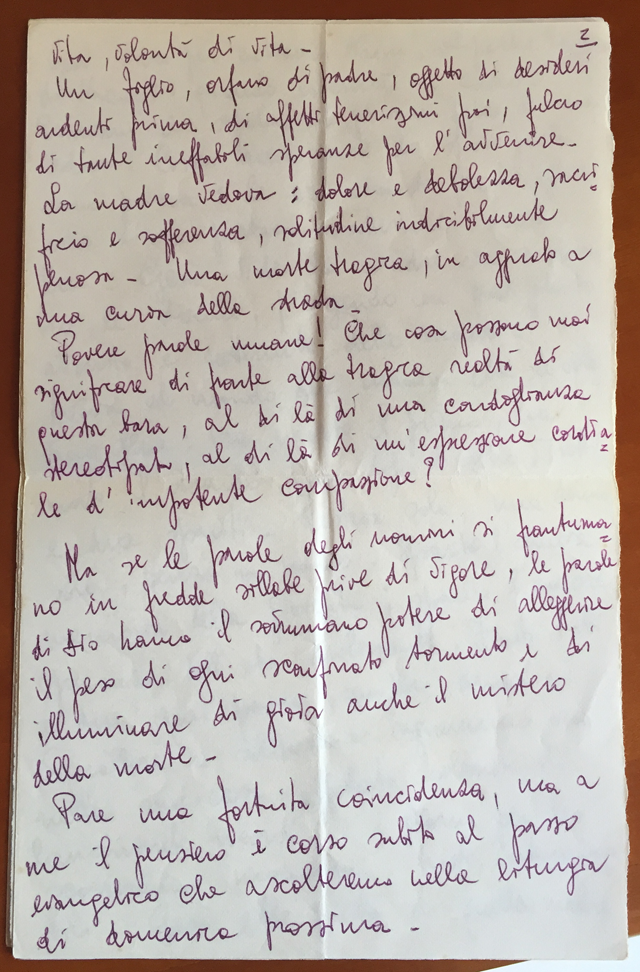 2
vita, volontà di vita -
Un figlio, orfano di padre, oggetto di desideri
ardenti prima, di affetti tenerissimi poi, fulcro
di tante ineffabili speranze per l'avvenire -
La madre vedova: dolore e debolezza, sacri=
ficio e sofferenza, solitudine indicibilmente
penosa - Una morte tragica, in agguato a
una curva della strada -
Povere parole umane! Che cosa possono mai
significare di fronte alla tragica realtà di
questa bara, al di là di una condoglianza
stereotipata, al di là di un'espressione cordia=
le d'impotente compassione?
Ma se le parole degli uomini si frantuma=
no in fredde sillabe prive di vigore, le parole
di Dio hanno il sovrumano potere di alleggerire
il peso di ogni sconfinato tormento e di
illuminare di gioia anche il mistero
della morte -
Pare una fortuita coincidenza, ma a
me il pensiero è corso subito al passo
evangelico che ascolteremo nella liturgia
di domenica prossima -